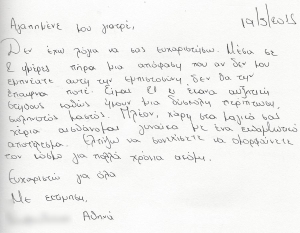 Αγαπημένε μου γιατρέ,
19/3/2015
Δεν έχω λόγια να σας ευχαριστήσω. Μέσα σε
2 ημέρες πήρα μια απόφαση που αν δεν μου
εμπνέατε αυτή την εμπιστοσύνη, δεν θα την
έπαιρνα ποτέ. Είμαι εδώ έκανα αυξητική
στήθους καθώς ήμουν μια δύσκολη περίπτωση,
σωληνωτός μαστός. Πλέον, χάρη στα μαγικά σας
χέρια αισθάνομαι γυναίκα με ένα εκθαμβωτικό
αποτέλεσμα. Ελπίζω να συνεχίσετε να ομορφαίνετε
τον κόσμο για πολλά χρόνια ακόμη.
Ευχαριστώ για όλα
Με εκτίμηση,
Αθηνά